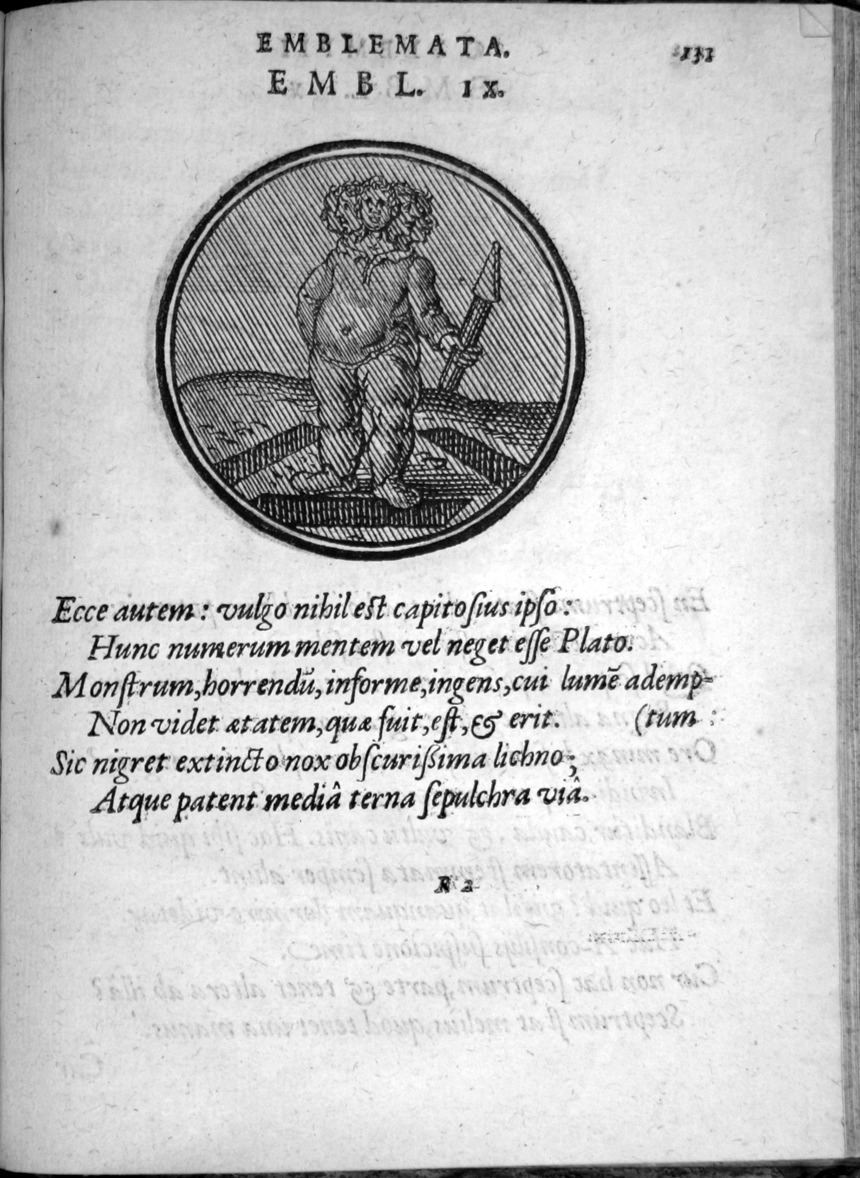 EMBLEMATA. 131
EMBL. IX.
Ecce autem: vulgo nihil est capitoſius ipſo:
Hunc numerum mentem vel neget eſſe Plato.
Monſtrum, horrendũ, informe, ingens, cui lumẽ ademp-
Non videt ætatem, quæ fuit, eſt, & erit. (tum
Sic nigret extincto nox obſcuriſſima lichno;
Atque patent mediâ terna ſepulchra viâ.
R 2